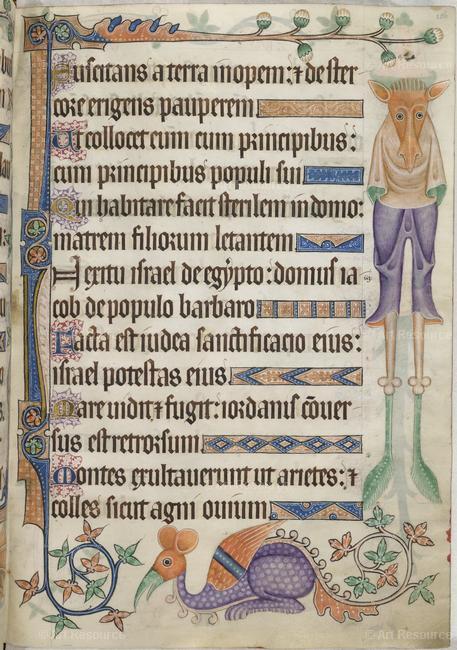 Suscitans a terra inopem: ⁊ de ster
core erigens pauperem
Ut collocet eum cum principibus:
cum principibus populi sui
Qui habitare facit sterilem in domo:
matrem filiorum letantem
In exitu israel de egypto: domus ia
cob de populo barbaro
Facta est iudea sanctificacio eius:
israel potestas eius
Mare uidit ⁊ fugit: iordanis cōuer
sus est retrorsum
Montes exultauerunt ut arietes: ⁊
colles sicut agni ouium
© Art Resource
© Art Resource
© Art Resource